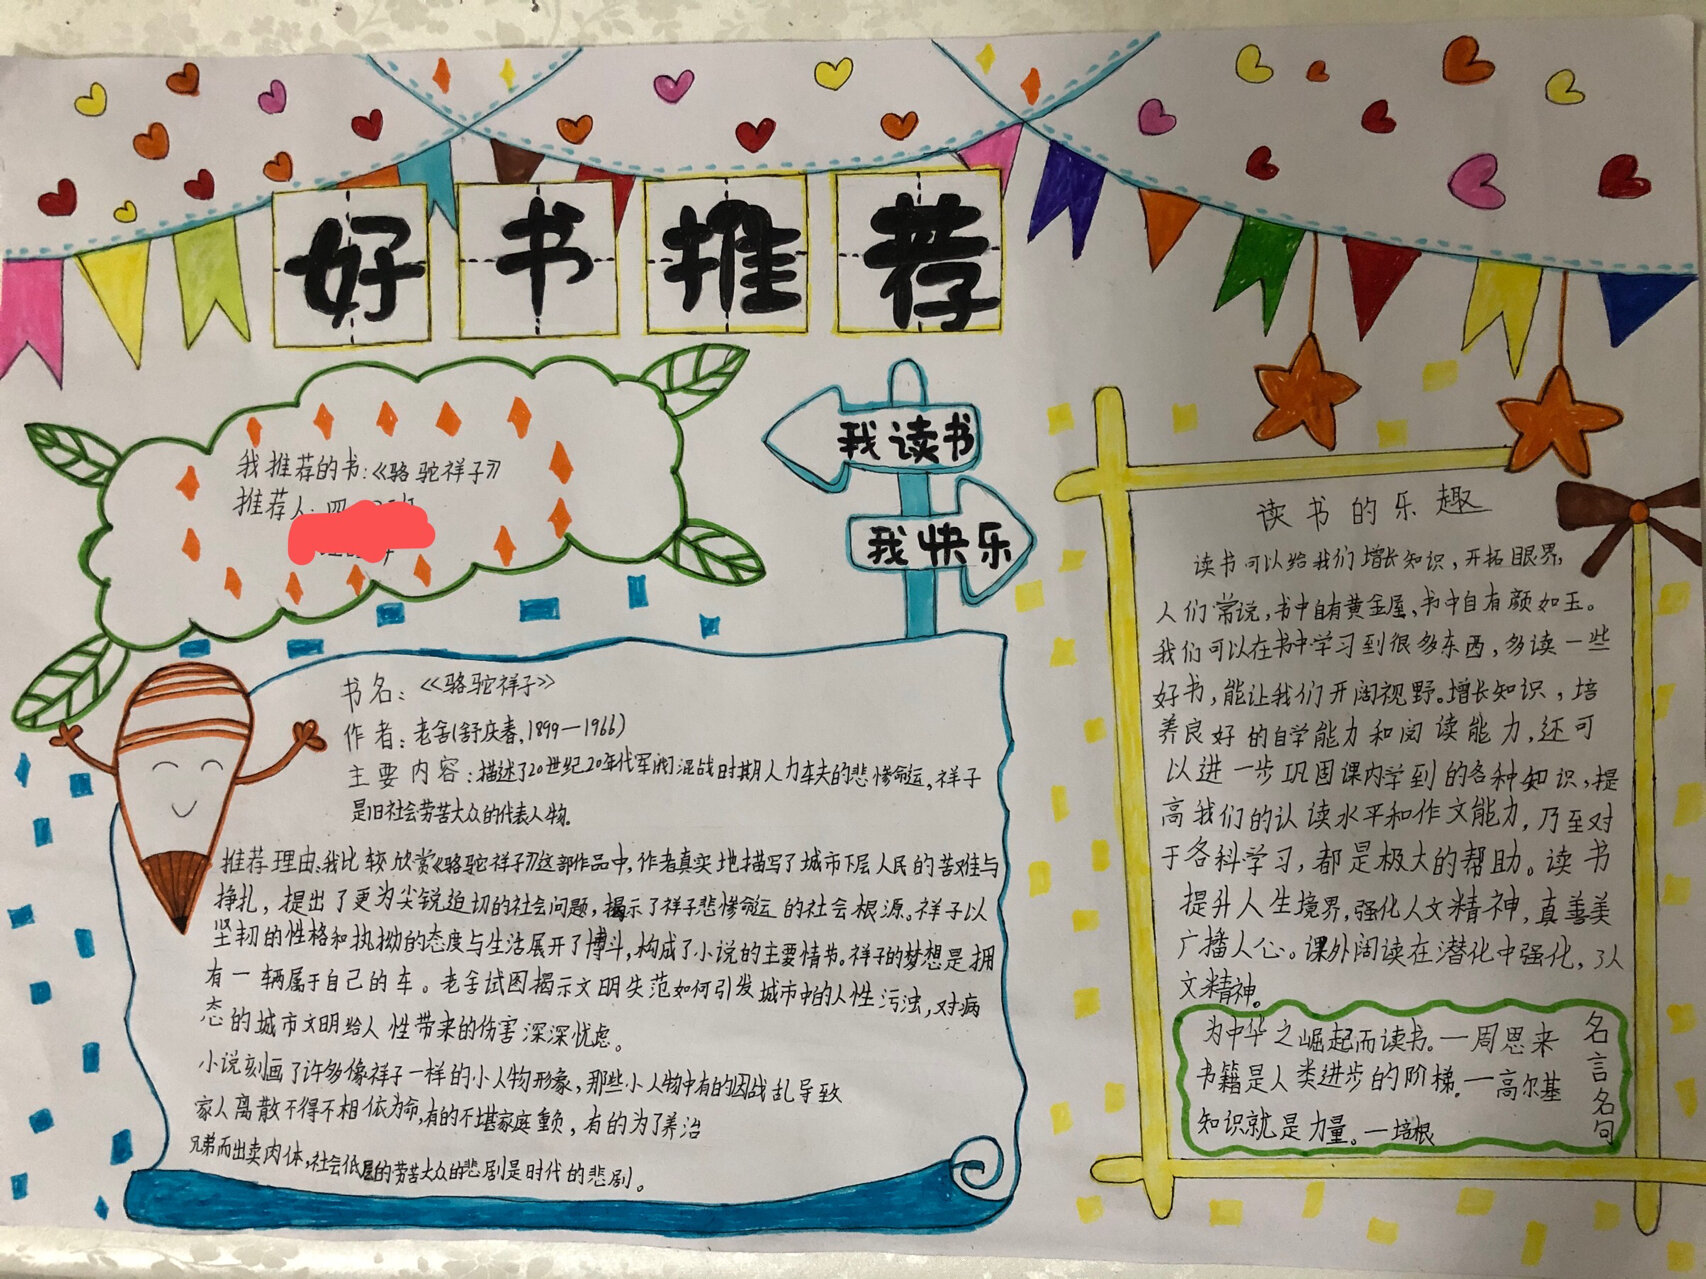 好书推荐
我推荐的书:《骆驼祥子》
推荐人:四
我读书
我快乐
书名:《骆驼祥子》
作者:老舍(舒庆春,1899—1966)
主要内容:描述了20世纪20年代军阀混战时期人力车夫的悲惨命运,祥子
是旧社会劳苦大众的代表人物.
推荐理由:我比较欣赏《骆驼祥子》这部作品中,作者真实地描写了城市下层人民的苦难与
挣扎,提出了更为尖锐迫切的社会问题,揭示了祥子悲惨命运的社会根源。祥子以
坚韧的性格和执拗的态度与生活展开了博斗,构成了小说的主要情节。祥子的梦想是拥
有一辆属于自己的车。老舍试图揭示文明失范如何引发城市中的人性污浊,对病
态的城市文明给人性带来的伤害深深忧虑。
小说刻画了许多像祥子一样的小人物形象,那些小人物中有的因战乱导致
家人离散不得不相依为命,有的不堪家庭重负,有的为了养活
兄弟而出卖肉体,社会低层的劳苦大众的悲剧是时代的悲剧。
读书的乐趣
读书可以给我们增长知识,开拓眼界,
人们常说,书中自有黄金屋,书中自有颜如玉。
我们可以在书中学习到很多东西,多读一些
好书,能让我们开阔视野。增长知识,培
养良好的自学能力和阅读能力,还可
以进一步巩固课内学到的各种知识,提
高我们的认读水平和作文能力,乃至对
于各科学习,都是极大的帮助。读书
提升人生境界,强化人文精神,真善美
广播人心。课外阅读在潜化中强化,了人
文精神。
名言名句
为中华之崛起而读书。—周恩来
书籍是人类进步的阶梯.—高尔基
知识就是力量。—培根